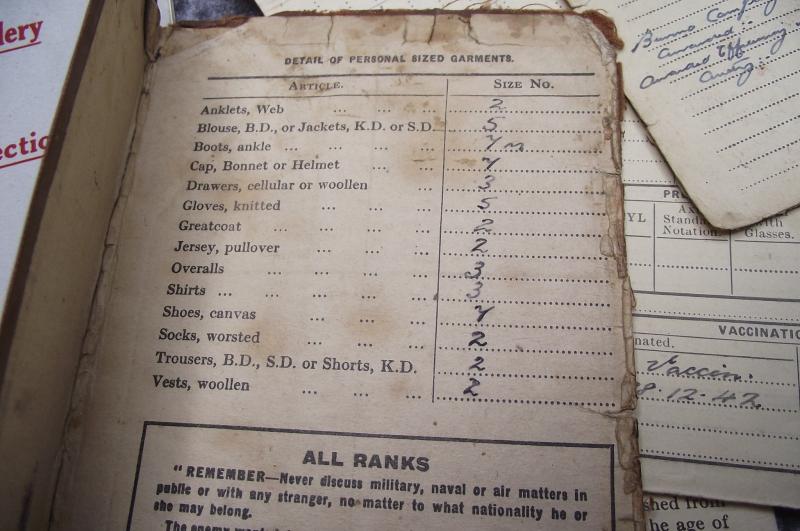 lery
ectio
DETAIL OF PERSONAL SIZED GARMENTS.
ARTICLE. SIZE NO.
Anklets, Web ... ... ... 2
Blouse, B.D., or Jackets, K.D. or S.D. 5
Boots, ankle ... ... ... ... 7 m
Cap, Bonnet or Helmet ... ... 7
Drawers, cellular or woollen ... 3
Gloves, knitted ... ... ... 5
Greatcoat ... ... ... ... 2
Jersey, pullover ... ... ... 2
Overalls ... ... ... ... 3
Shirts ... ... ... ... ... 3
Shoes, canvas ... ... ... 7
Socks, worsted ... ... ... 2
Trousers, B.D., S.D. or Shorts, K.D. 2
Vests, woollen ... ... ... 2
ALL RANKS
"REMEMBER—Never discuss military, naval or air matters in
public or with any stranger, no matter to what nationality he or
she may belong.
The enemy
Burma
awarded
awarded
PR
YL
Standa
Notation.
With
Glasses.
VACCINATIO
nated.
Vaccin.
8.12.42
shed from
he age of